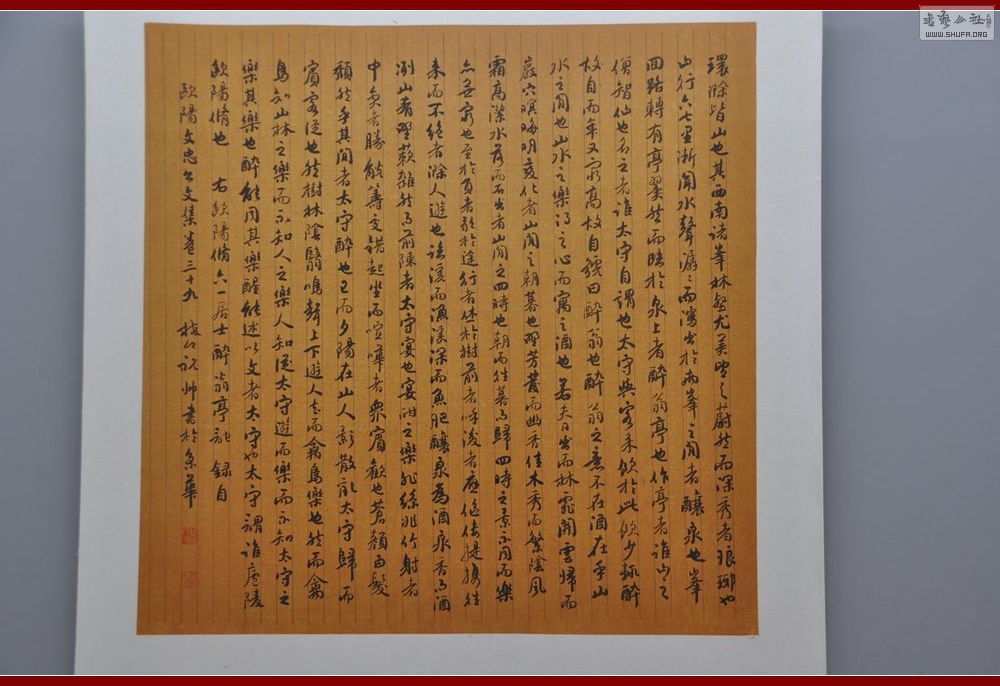 環滁皆山也其西南諸峯林壑尤美望之蔚然而深秀者琅琊也
山行六七里漸聞水聲潺〻而瀉出於兩峯之間者釀泉也峯
回路轉有亭翼然而臨於泉上者醉翁亭也作亭者誰山之
僧智仙也名之者誰太守自謂也太守與客來飲於此飲少輒醉
故自而年又最高故自號曰醉翁也醉翁之意不在酒在乎山
水之間也山水之樂得之心而寓之酒也若夫日出而林霏開雲歸而
巖穴暝晦明變化者山間之朝暮也野芳發而幽香佳木秀而繁陰風
霜高潔水落而石出者山間之四時也朝而往暮而歸四時之景不同而樂
亦無窮也至於負者歌於途行者休於樹前者呼後者應傴僂提攜往
來而不絕者滁人遊也臨溪而漁溪深而魚肥釀泉為酒泉香而酒
洌山肴野蔌雜然而前陳者太守宴也宴酣之樂非絲非竹射者
中奕者勝觥籌交錯起坐而喧嘩者衆賓歡也蒼顏白髮
頹然乎其間者太守醉也已而夕陽在山人影散亂太守歸而
賓客從也然樹林陰翳鳴聲上下遊人去而禽鳥樂也然而禽
鳥知山林之樂而不知人之樂人知從太守遊而樂而不知太守之
樂其樂也醉能同其樂醒能述以文者太守也太守謂誰廬陵
歐陽脩也 右歐陽脩六一居士醉翁亭記 錄自
歐陽文忠公文集卷三十九 書於京華
書藝公社
WWW.SHUFA.ORG